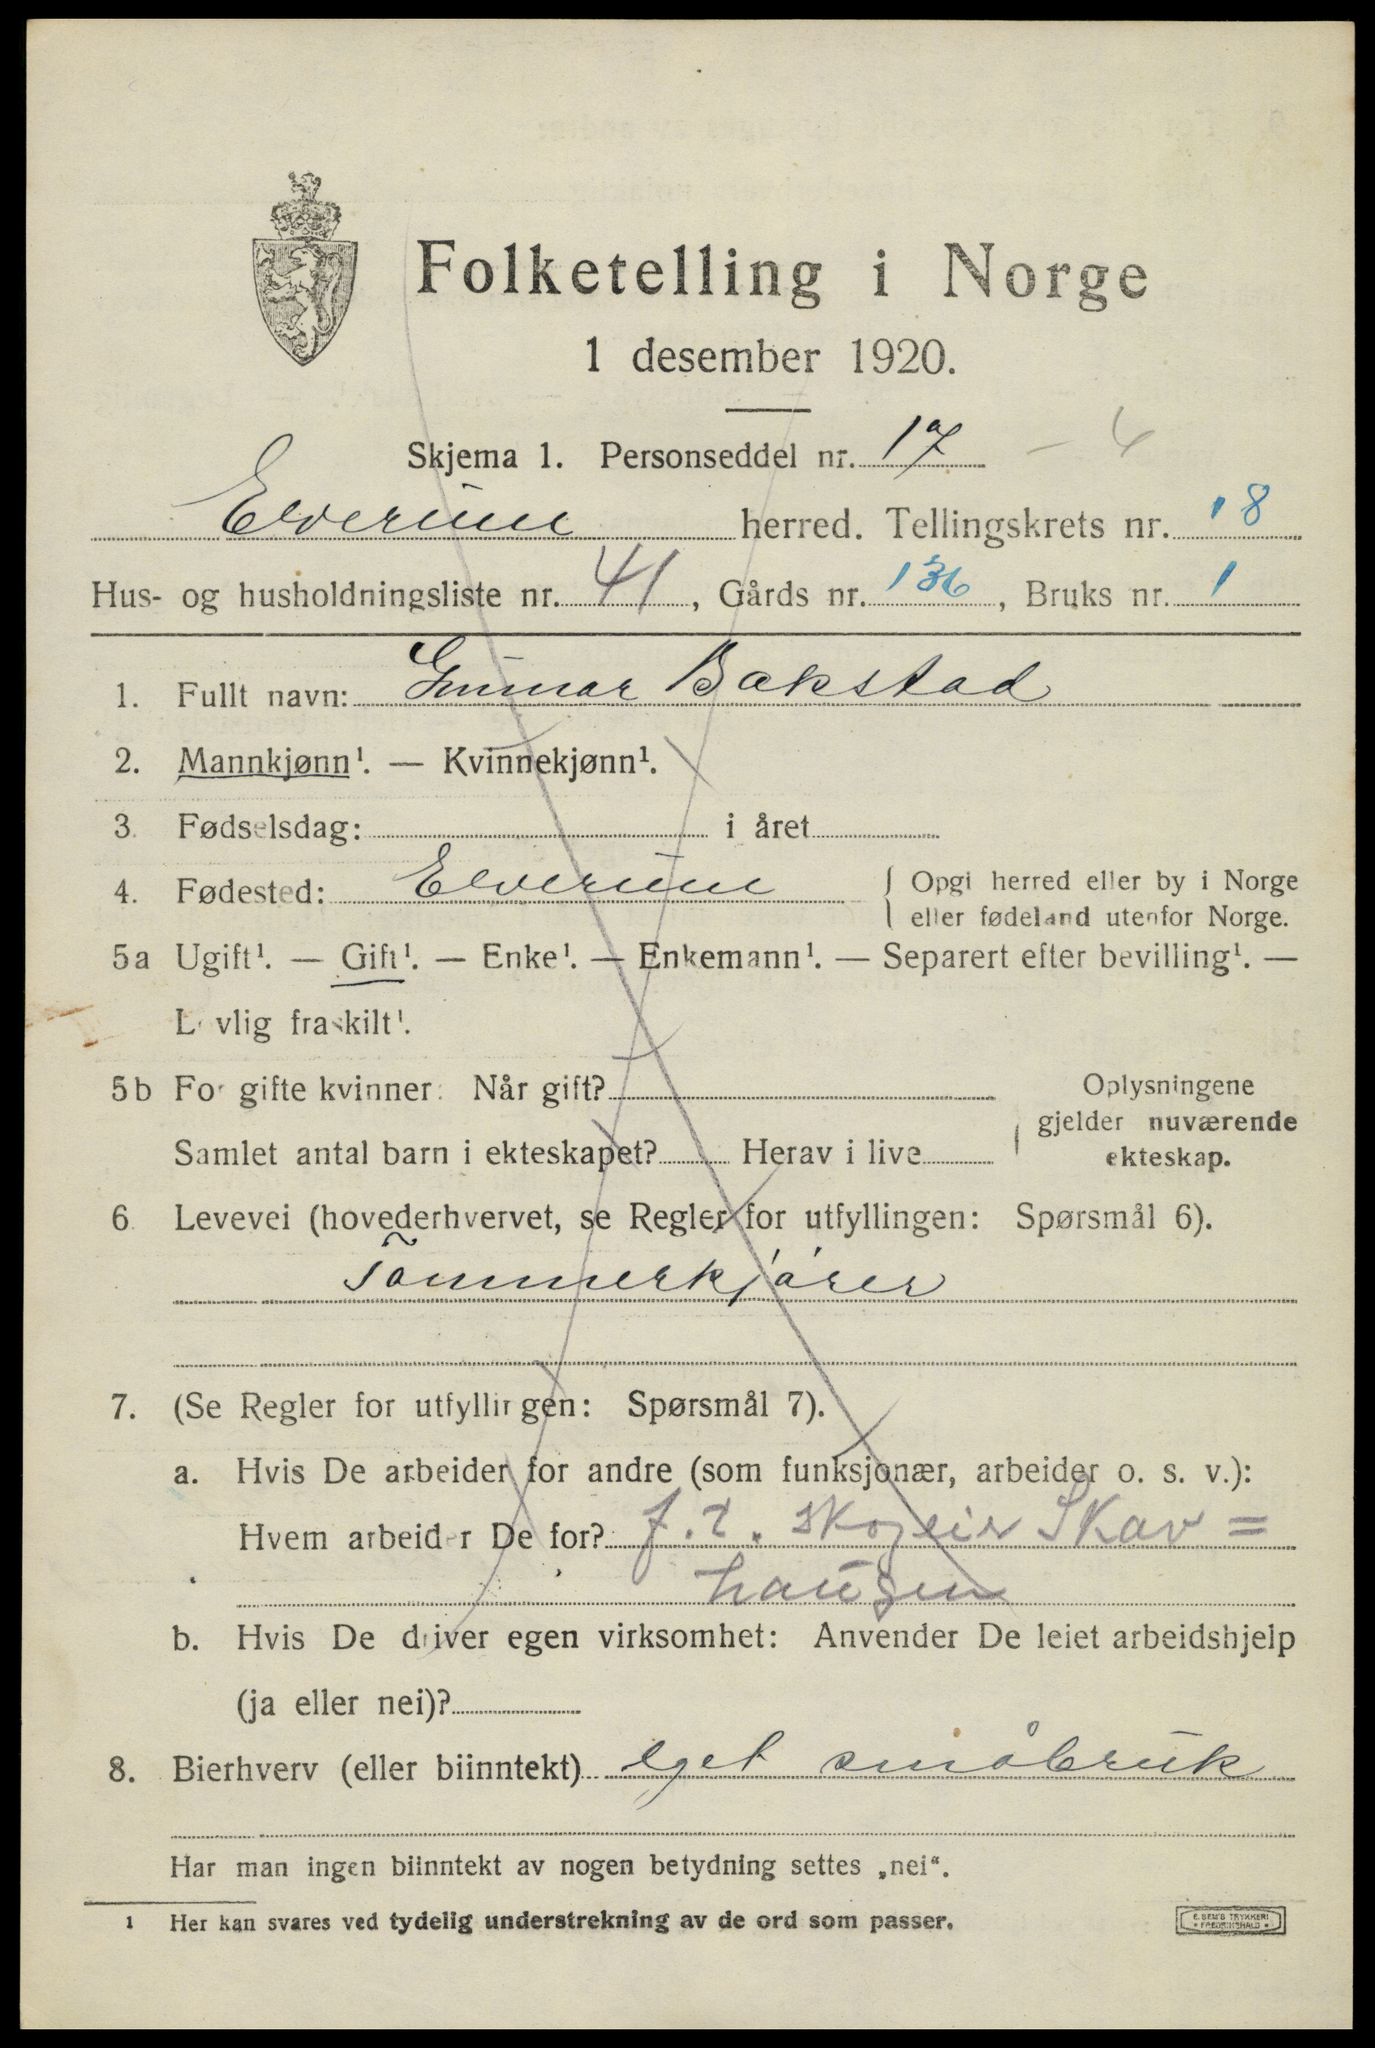 Folketelling i Norge
1 desember 1920.
Skjema 1. Personseddel nr. 17 - 4
Elverum herred. Tellingskrets nr. 18
Hus- og husholdningsliste nr. 41, Gårds nr. 136, Bruks nr. 1
1. Fullt navn: Gunnar Bakstad
2. Mannkjønn¹. — Kvinnekjønn¹.
3. Fødselsdag: i året
4. Fødested: Elverum { Opgi herred eller by i Norge
eller fødeland utenfor Norge.
5a Ugift¹. — Gift¹. — Enke¹. — Enkemann¹. — Separert efter bevilling¹. —
Lovlig fraskilt¹.
5b For gifte kvinner: Når gift? Oplysningene
gjelder nuværende
Samlet antal barn i ekteskapet? Herav i live ekteskap.
6. Levevei (hovederhvervet, se Regler for utfyllingen: Spørsmål 6).
Tømmerkjører
7. (Se Regler for utfyllingen: Spørsmål 7).
a. Hvis De arbeider for andre (som funksjonær, arbeider o. s. v.):
Hvem arbeider De for? f. t. skogeier Skav=
haugen
b. Hvis De driver egen virksomhet: Anvender De leiet arbeidshjelp
(ja eller nei)?
8. Bierhverv (eller biinntekt) eget småbruk
Har man ingen biinntekt av nogen betydning settes „nei“.
1 Her kan svares ved tydelig understrekning av de ord som passer.
E. SEM'S TRYKKERI
FREDRIKSHALD